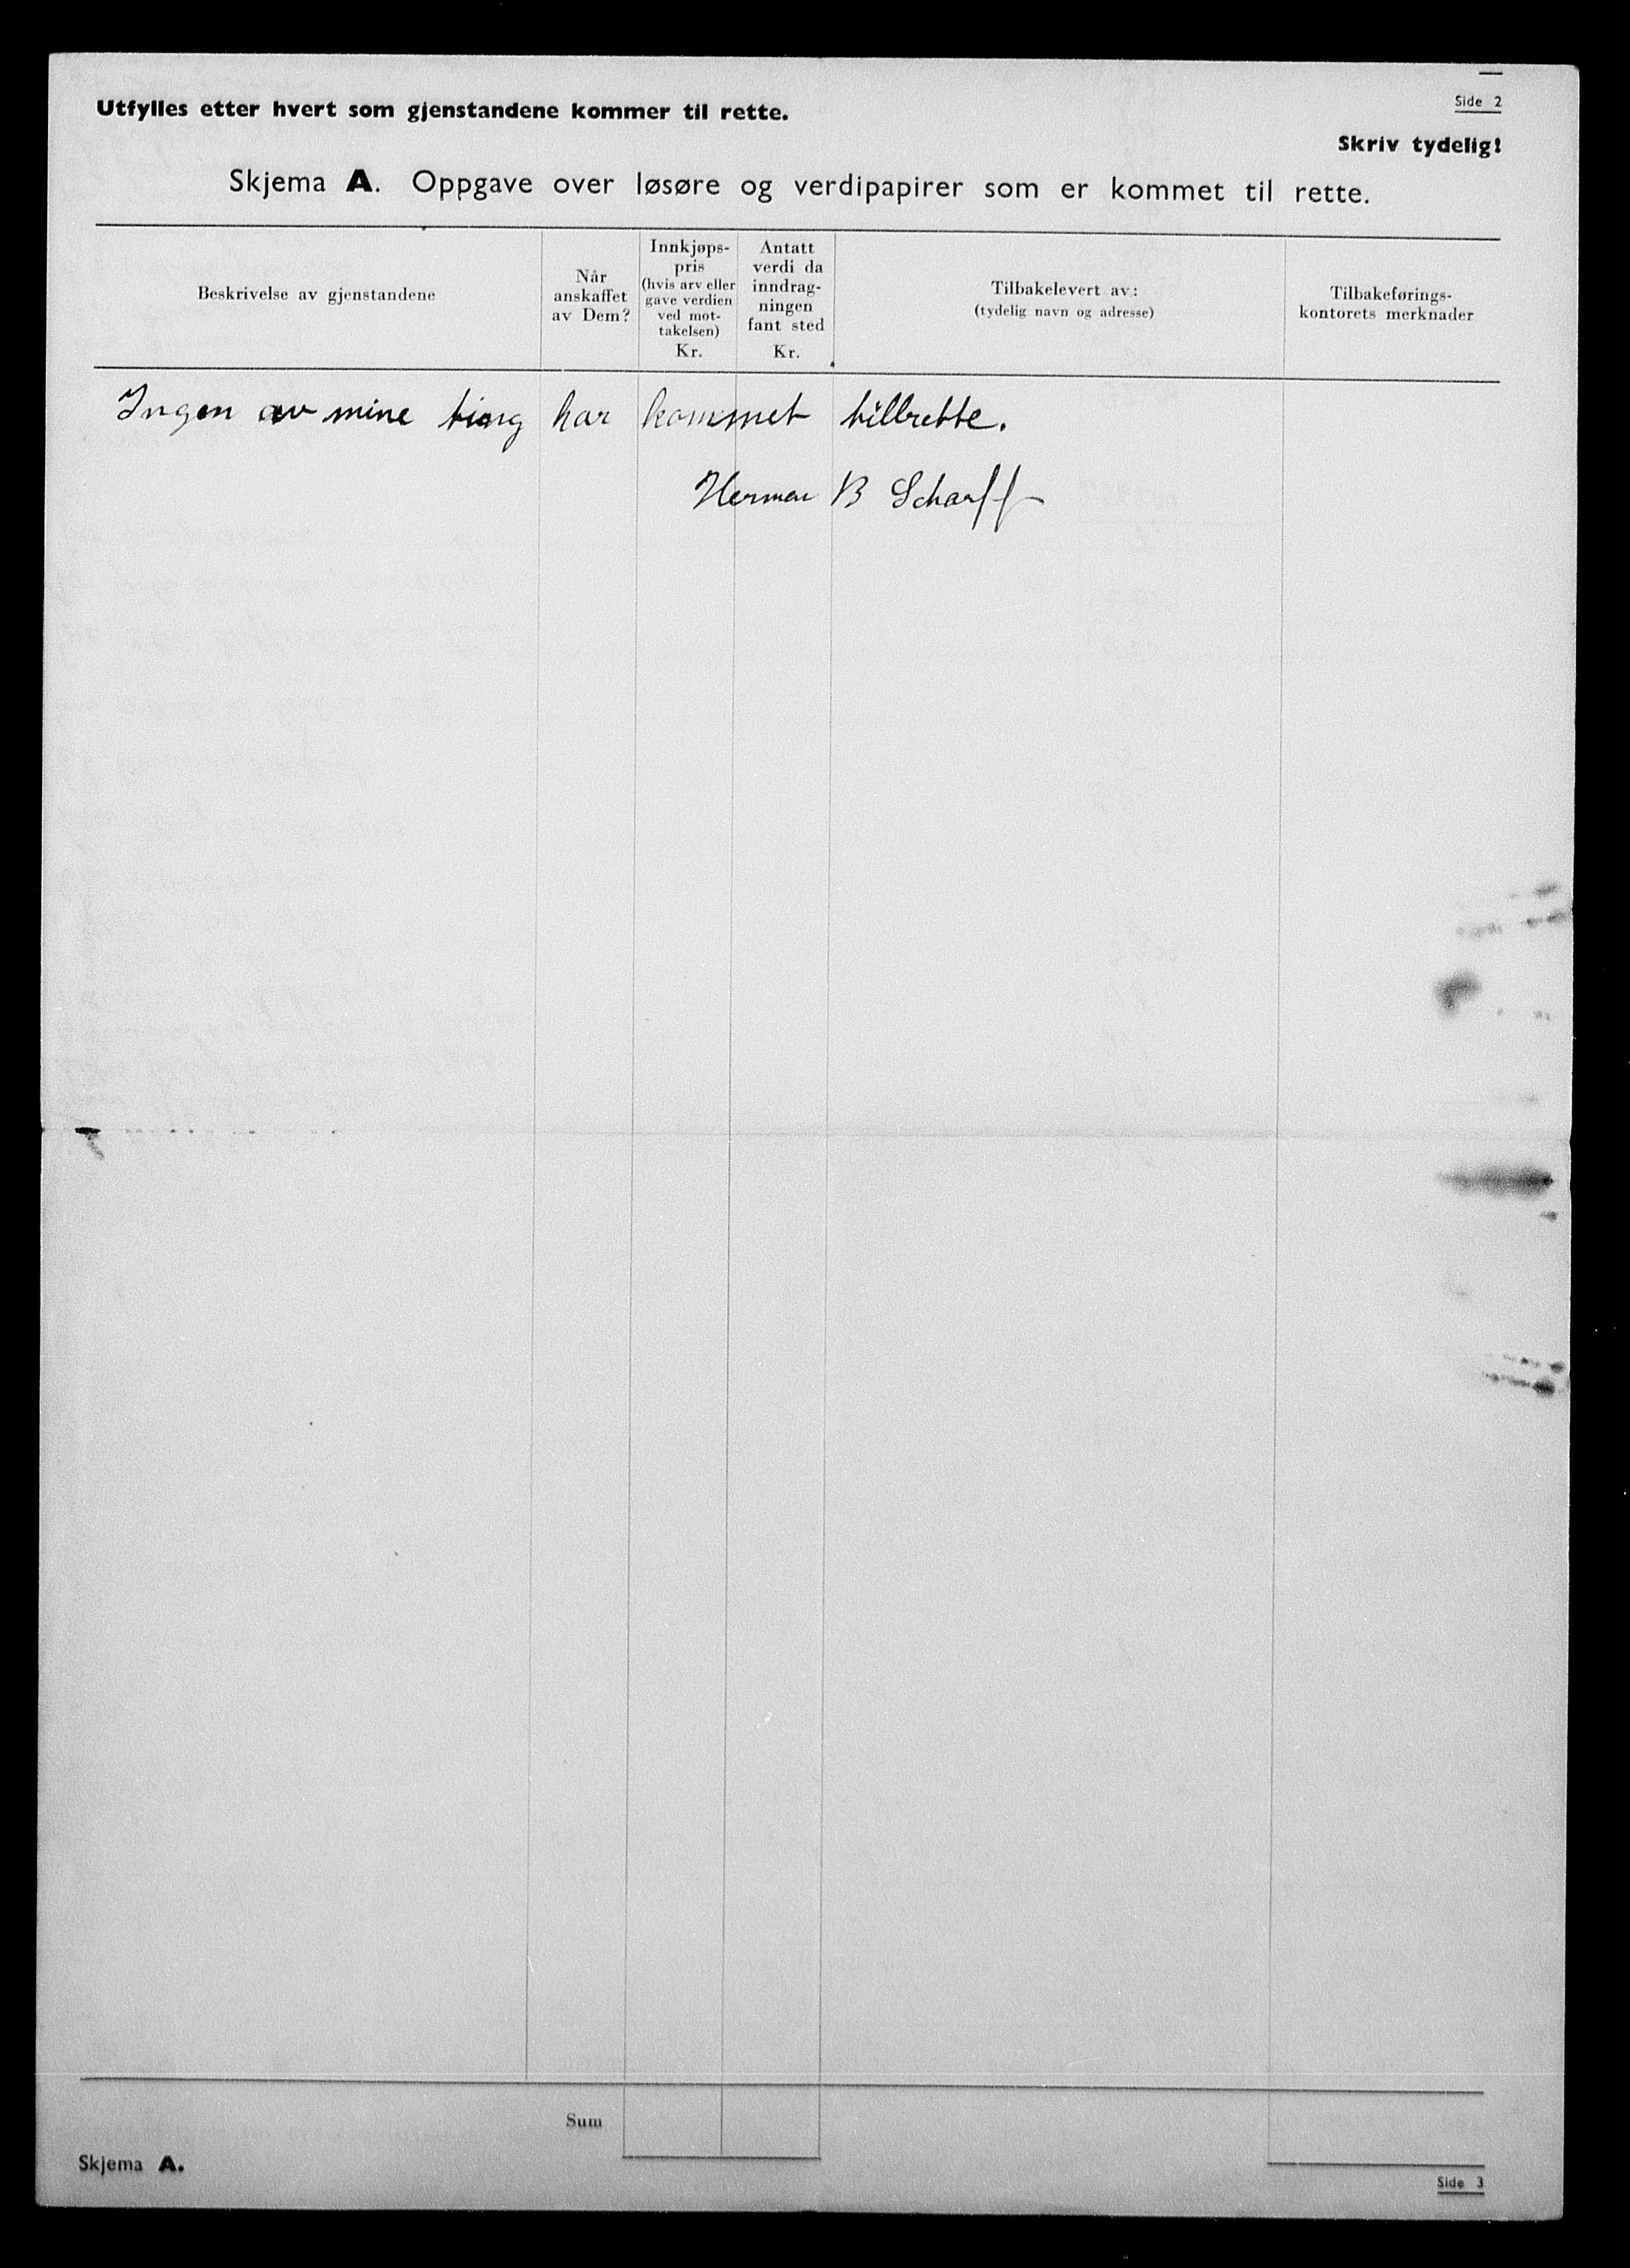 Side 2
Utfylles etter hvert som gjenstandene kommer til rette.
Skriv tydelig!
Skjema A. Oppgave over løsøre og verdipapirer som er kommet til rette.
Beskrivelse av gjenstandene
Når
anskaffet
av Dem?
Innkjøps-
pris
(hvis arv eller
gave verdien
ved mot-
takelsen)
Kr.
Antatt
verdi da
inndrag-
ningen
fant sted
Kr.
Tilbakelevert av:
(tydelig navn og adresse)
Tilbakeførings-
kontorets merknader
Ingen av mine ting har kommet tillrette.
Herman B Scharff
Sum
Skjema A.
Side 3